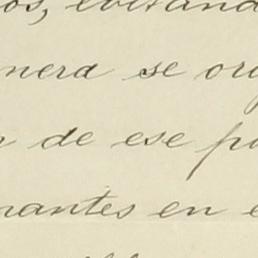 os, evitand
nera se or
de ese p
nantes en e